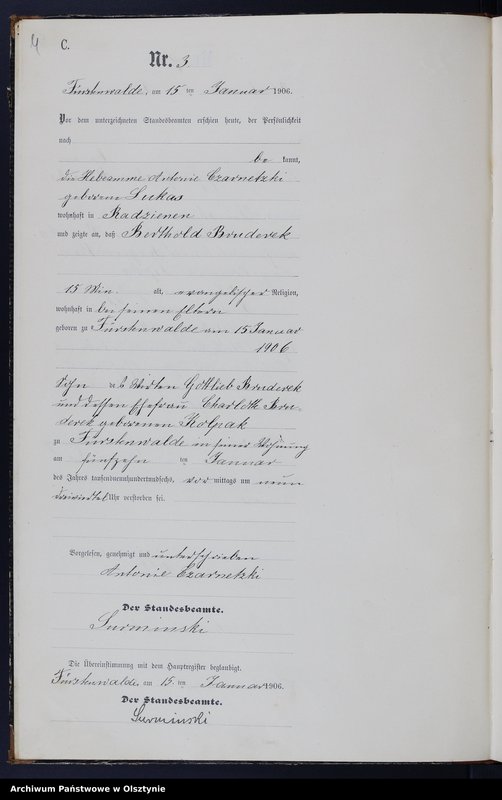 4
C.
Nr. 3
Fürstenwalde, am 15 ten Januar 1906.
Vor dem unterzeichneten Standesbeamten erschien heute, der Persönlichkeit
nach
be kannt,
die Hebeamme Antonie Czarnetzki
geborene Lukas
wohnhaft in Radzienen
und zeigte an, daß Berthold Bruderek
15 Min. alt, evangelischer Religion,
wohnhaft in bei seinen Eltern
geboren zu Fürstenwalde am 15 Januar
1906
Sohn des Wirten Gottlieb Bruderek
und dessen Ehefrau Charlotte Bru-
derek geborenen Kolpak
zu Fürstenwalde in seiner Wohnung
am fünfzehn ten Januar
des Jahres tausendneunhundertundsechs, vor mittags um neun
dreiviertel Uhr verstorben sei.
Vorgelesen, genehmigt und unterschrieben
Antonie Czarnetzki
Der Standesbeamte.
Surminski
Die Übereinstimmung mit dem Hauptregister beglaubigt.
Fürstenwalde, am 15. ten Januar 1906.
Der Standesbeamte.
Surminski
Archiwum Państwowe w Olsztynie